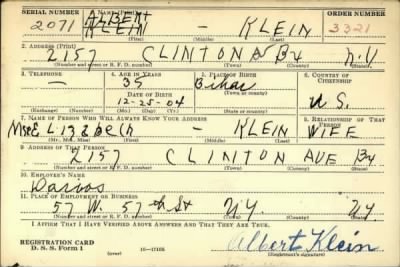 SERIAL NUMBER 1. NAME (Print) ORDER NUMBER
2071 ALBERT - KLEIN 3321
KLEIN
(First) (Middle) (Last)
2. ADDRESS (Print)
2157 CLINTON AV BX N.Y.
(Number and street or R. F. D. number) (Town) (County) (State)
3. TELEPHONE 4. AGE IN YEARS 5. PLACE OF BIRTH 6. COUNTRY OF CITIZENSHIP
— 35 Bihar
DATE OF BIRTH (Town or county)
12-25-04 U.S.
(Exchange) (Number) (Mo.) (Day) (Yr.) (State or country)
7. NAME OF PERSON WHO WILL ALWAYS KNOW YOUR ADDRESS 8. RELATIONSHIP OF THAT PERSON
Mrs ELIZABETH - KLEIN WIFE
(Mr., Mrs., Miss) (First) (Middle) (Last)
9. ADDRESS OF THAT PERSON
2157 CLINTON AVE BX NY
(Number and street or R. F. D. number) (Town) (County) (State)
10. EMPLOYER'S NAME
11. PLACE OF EMPLOYMENT OR BUSINESS
57 W. 57th St NY. NY
(Number and street or R. F. D. number) (Town) (County) (State)
I AFFIRM THAT I HAVE VERIFIED ABOVE ANSWERS AND THAT THEY ARE TRUE.
REGISTRATION CARD
D. S. S. Form 1 (over) 16—17105 Albert Klein
(Registrant's signature)